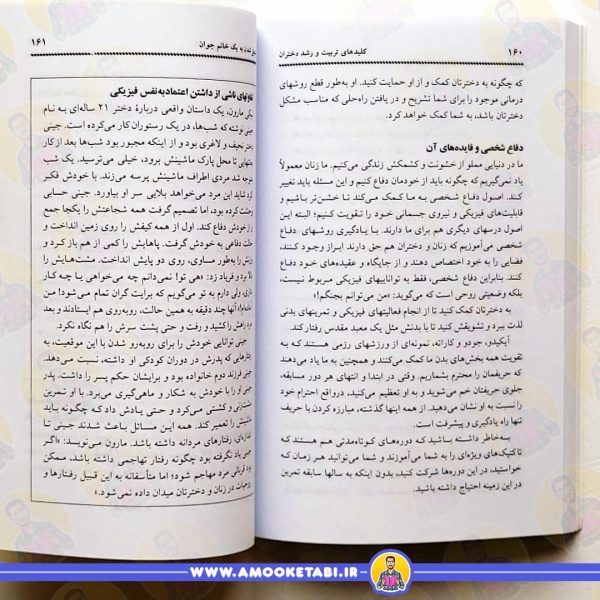 ۱۶۰ کلیدهای تربیت و رشد دختران
که چگونه به دخترتان کمک و از او حمایت کنید. او به‌طور قطع روشهای
درمانی موجود را برای شما تشریح و در یافتن راه‌حلی که مناسب مشکل
دخترتان باشد، به شما کمک خواهد کرد.
دفاع شخصی و فایده‌های آن
ما در دنیایی مملو از خشونت و کشمکش زندگی می‌کنیم. ما زنان معمولاً
یاد نمی‌گیریم که چگونه باید از خودمان دفاع کنیم و این مسئله باید تغییر
کند. اصول دفاع شخصی به ما کمک می‌کند تا خشن‌تر باشیم و
قابلیت‌های فیزیکی و نیروی جسمانی خود را تقویت کنیم؛ البته این
اصول درسهای دیگری هم برای ما دارند. با یادگیری روشهای دفاع
شخصی می‌آموزیم که زنان و دختران هم حق دارند، ابراز وجود کنند،
فضایی را به خود اختصاص دهند و از جایگاه و عقیده‌های خود دفاع
کنند. بنابراین دفاع شخصی، فقط به تواناییهای فیزیکی مربوط نیست،
بلکه وضعیتی روحی است که می‌گوید: «من می‌توانم بجنگم!»
به دخترتان کمک کنید تا از انجام فعالیتهای فیزیکی و تمرینهای بدنی
لذت ببرد و تشویقش کنید تا با بدنش مثل یک معبد مقدس رفتار کند.
آیکیدو، جودو و کاراته، نمونه‌ای از ورزشهای رزمی هستند که به
تقویت همه بخش‌های بدن ما کمک می‌کنند و همچنین به ما یاد می‌دهند
که حریفمان را محترم بشماریم. وقتی در ابتدا و انتهای هر دور مسابقه،
جلوی حریفتان خم می‌شوید و به او تعظیم می‌کنید، درواقع احترام خود
را نسبت به او نشان می‌دهید. از همه اینها گذشته، مبارزه کردن با حریف
تنها راه یادگیری و پیشرفت است.
به‌خاطر داشته باشید که دوره‌های کوتاه‌مدتی هم هستند که
تاکتیک‌های ویژه‌ای را به شما می‌آموزند و شما می‌توانید هر زمان که
خواستید، در این دوره‌ها شرکت کنید، بدون اینکه به سالها تمرین
در این زمینه احتیاج داشته باشید.
شدن به یک خانم جوان ۱۶۱
ناشی از داشتن اعتمادبه‌نفس فیزیکی
مارون، یک داستان واقعی دربارهٔ دختر ۲۱ ساله‌ای به نام
جینی نوشته که شب‌ها، در یک رستوران کار می‌کرده است. جینی
دختر نحیف و لاغری بود و از اینکه مجبور بود شب‌ها بعد از کار
تا محل پارک ماشینش برود، خیلی می‌ترسید. یک شب
شد مردی اطراف ماشینش پرسه می‌زند. با خودش فکر
شاید این مرد می‌خواهد بلایی سر او بیاورد. جینی حسابی
وحشت کرده بود، اما تصمیم گرفت همه شجاعتش را یکجا جمع
از خودش دفاع کند. اول از همه کیفش را روی زمین انداخت و
حالت دفاعی به خودش گرفت. پاهایش را کمی از هم باز کرد و
را به‌طور مساوی، روی دو پایش انداخت. مشت‌هایش را
برد و فریاد زد: «هی تو! نمی‌دانم چه می‌خواهی یا چه کار
داری، ولی دارم به تو می‌گویم که برایت گران تمام می‌شود! من
آنها چند دقیقه به همین حالت، روبه‌روی هم ایستادند و بعد
راهش را کشید و رفت و حتی پشت سرش را هم نگاه نکرد.
جینی توانایی خودش را برای روبه‌رو شدن با این موقعیت، به
که پدرش در دوران کودکی او داشته، نسبت می‌دهد.
جینی فرزند دوم خانواده بود و برایشان حکم پسر را داشت.
جینی او را با خودش به شکار و ماهیگیری می‌برد. با او تمرین
و کشتی می‌کرد و حتی یادش داد که چگونه باید
را تعمیر کند. همه این مسائل باعث شدند جینی تا
رفتارهای مردانه داشته باشد. مارون می‌گوید: «اگر
جینی یاد نگرفته بود چگونه رفتار تهاجمی داشته باشد، ممکن
قربانی مرد مهاجم شود؛ اما متأسفانه به این قبیل رفتارها و
در زنان و دخترتان میدان داده نمی‌شود.»
WWW.AMOOKETABI.IR